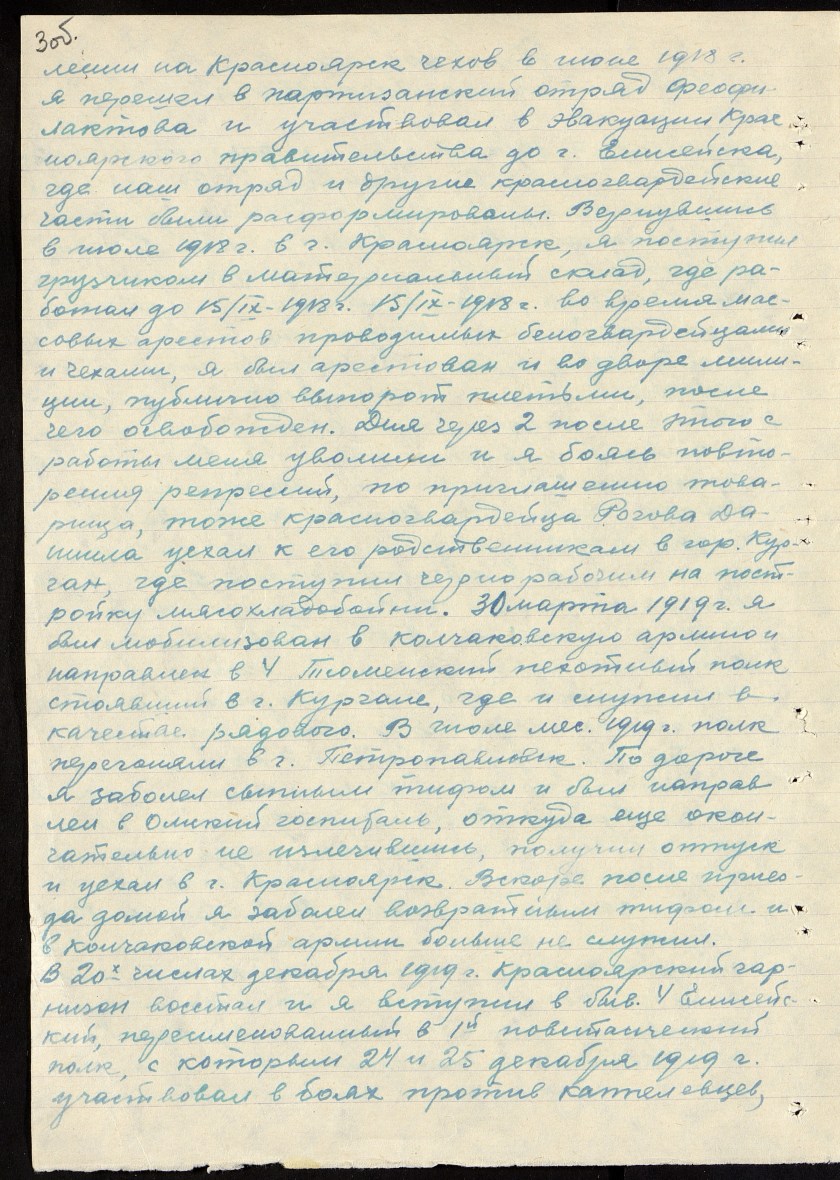 3об.
лении на Красноярск чехов в июне 1918 г.
я перешел в партизанский отряд Феофи-
лактова и участвовал в эвакуации Крас
ноярского правительства до г. Енисейска,
где наш отряд и другие красногвардейские
части были расформированы. Вернувшись
в июле 1918 г. в г. Красноярск, я поступил
грузчиком в материальный склад, где ра-
ботал до 15/IX-1918 г. 15/IX-1918 г. во время мас-
совых арестов проводимых белогвардейцами
и чехами, я был арестован и во дворе мили-
ции, публично выпорот плетьми, после
чего освобожден. Дня через 2 после этого с
работы меня уволили и я боясь повто-
рения репрессий, по приглашению това-
рища, тоже красногвардейца Рогова Да-
ниила уехал к его родственникам в гор. Кур-
ган, где поступил чернорабочим на пост-
ройку мясохладобойни. 30 марта 1919 г. я
был мобилизован в колчаковскую армию и
направлен в 4 Тюменский пехотный полк
стоявший в г. Кургане, где и служил в
качестве рядового. В июле мес. 1919 г. полк
перегоняли в г. Петропавловск. По дороге
я заболел сыпным тифом и был направ
лен в Омский госпиталь, откуда еще окон-
чательно не излечившись, получил отпуск
и уехал в г. Красноярск. Вскоре после приез-
да домой я заболел возвратным тифом и
в колчаковской армии больше не служил.
В 20х числах декабря 1919 г. Красноярский гар-
низон восстал и я вступил в быв. 4 Енисейс-
кий, переименованный в 1й повстанческий
полк, с которым 24 и 25 декабря 1919 г.
участвовал в боях против каппелевцев,